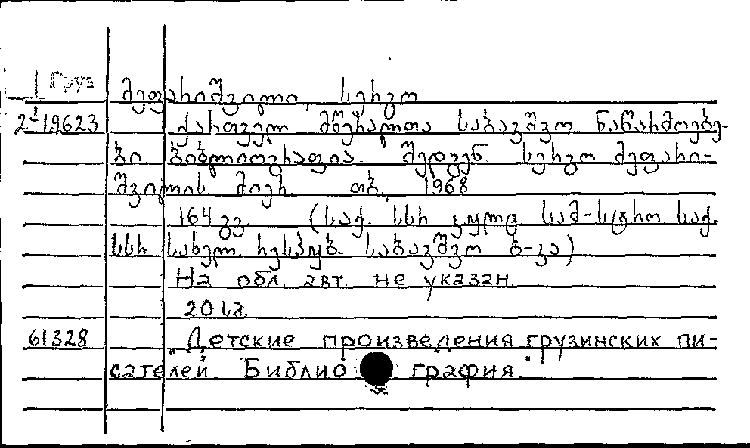 Груз
მეფარიშვილი, სერგო
2-19623 ქართველ მწერალთა საბავშვო ნაწარმოებე-
ბი ბიბლიოგრაფია. შეადგ. სერგო მეფარი-
შვილის მიერ. თბ., 1968
164 გვ. (საქ. სსრ კულტ. სამ-სტრო საქ.
სსრ სახელ. რესპუბ. საბავშვო ბ-კა)
На обл. авт. не указан.
20 к.
61328 "Детские произведения грузинских пи-
сателей. Библиография."